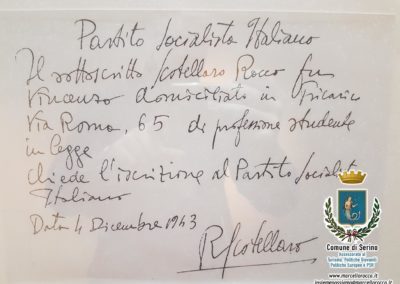 Partito Socialista Italiano
Il sottoscritto Scotellaro Rocco fu
Vincenzo domiciliato in Tricarico
Via Roma, 65 di professione studente
in legge
chiede l'iscrizione al Partito Socialista
Italiano
Data 4 Dicembre 1943
RScotellaro
Comune di Serino
Assessorato al
Turismo, Politiche Giovanili
Politiche Europee e PSR
www.marcellorocco.it